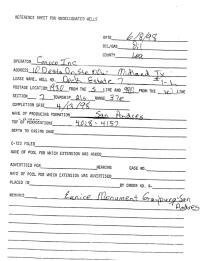 REFERENCE SHEET FOR UNDESIGNATED WELLS
DATE 6/8/98
OIL/GAS Oil
COUNTY Lea
OPERATOR Conoco Inc
ADDRESS 10 Desta Dr Ste Midland Tx
LEASE NAME, WELL NO. Estate #1
FOOTAGE LOCATION FROM THE S LINE AND FROM THE LINE
SECTION 2 TOWNSHIP RANGE 37e
COMPLETION DATE
NAME OF PRODUCING FORMATION San Andres
TOP OF PERFORATIONS 4018 - 4157
DEPTH TO CASING SHOE
C-123 FILED
NAME OF POOL FOR WHICH EXTENSION WAS ASKED
ADVERTISED FOR HEARING CASE NO.
NAME OF POOL FOR WHICH EXTENSION WAS ADVERTISED
PLACED IN BY ORDER NO. R-
REMARKS Eunice Monument Grayburg San
Andres